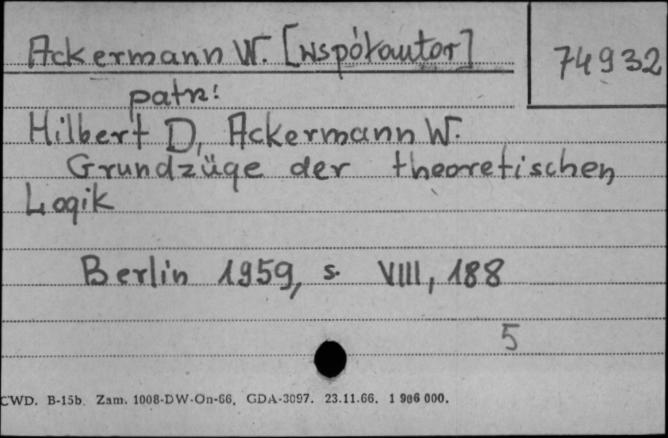 Ackermann W. [współautor]
74932
patrz:
Hilbert D, Ackermann W.
Grundzüge der theoretischen
Logik
Berlin 1959, s. VIII, 188
5
CWD. B-15b. Zam. 1008-DW-On-66. GDA-3097. 23.11.66. 1 906 000.